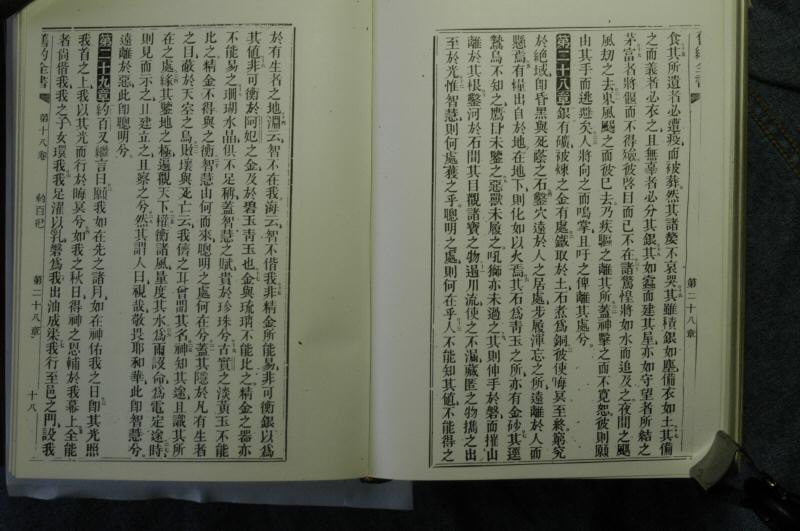 舊約全書
第二十八章
食其所遺者必遭疫而被葬然其諸嫠不哀哭其雖積銀如塵備衣如土其備
之而義者必衣之且無辜者必分其銀其如蠹而建其屋亦如守望者所結之
茅富者將偃而不得殮彼啓目而已不在諸驚惶將如水而追及之夜間之颶
風刧之去東風颺之而彼已去乃疾驅之離其所蓋神擊之而不寛恕彼則願
由其手而逃避矣人將向之而鳴掌且吁之俾離其處兮
第二十八章銀有礦被煉之金有處鐵取於土石煮爲銅彼使晦冥至終窮究
於絶域卽昏黑與死蔭之石鑿穴遠於人之居處步履渾忘之所遠離於人而
懸焉有糧出自於地在地下則化如以火焉其石爲靑玉之所亦有金砂其逕
鷙鳥不知之鷹目未鑒之惡獸未履之吼獅亦未過之其則伸手於磐而摧山
離於其根鑿河於石間其目觀諸寶之物遏川流使之不漏藏匿之物攜之出
至於光惟智慧則何處獲之乎聰明之處則何在乎人不能知其値不能得之
於有生者之地淵云智不在我海云智不偕我非精金所能易非可衡銀以爲
其値非可衡於阿妃之金及於碧玉靑玉也金與琉璃不能比之精金之器亦
不能易之珊瑚水晶俱不足稱蓋智慧之賦貴於珍珠兮古實之淡黃玉不能
比之精金不得與之衡智慧由何而來聰明之處何在兮蓋其隱於凡有生者
之目蔽於天空之鳥敗壞與死亡云我儕之耳曾聞其名神知其途且識其所
在之處緣其鑒地之極遍觀天下權衡諸風量度其水爲雨設命爲電定途時
則見而示之且建立之且察之兮然其謂人曰視哉敬畏耶和華此卽智慧兮
遠離於惡此卽聰明兮
第二十九章約百又繼言曰願我如在先之諸月如在神佑我之日卽其光照
我首之上我以其光而行於晦冥兮如我之秋日得神之恩輔於我幕上全能
者尙偕我我之子女環我我足濯以乳磐爲我出油成渠我行至邑之門設我
舊約全書
第十八卷
約百記
第二十八章
十八